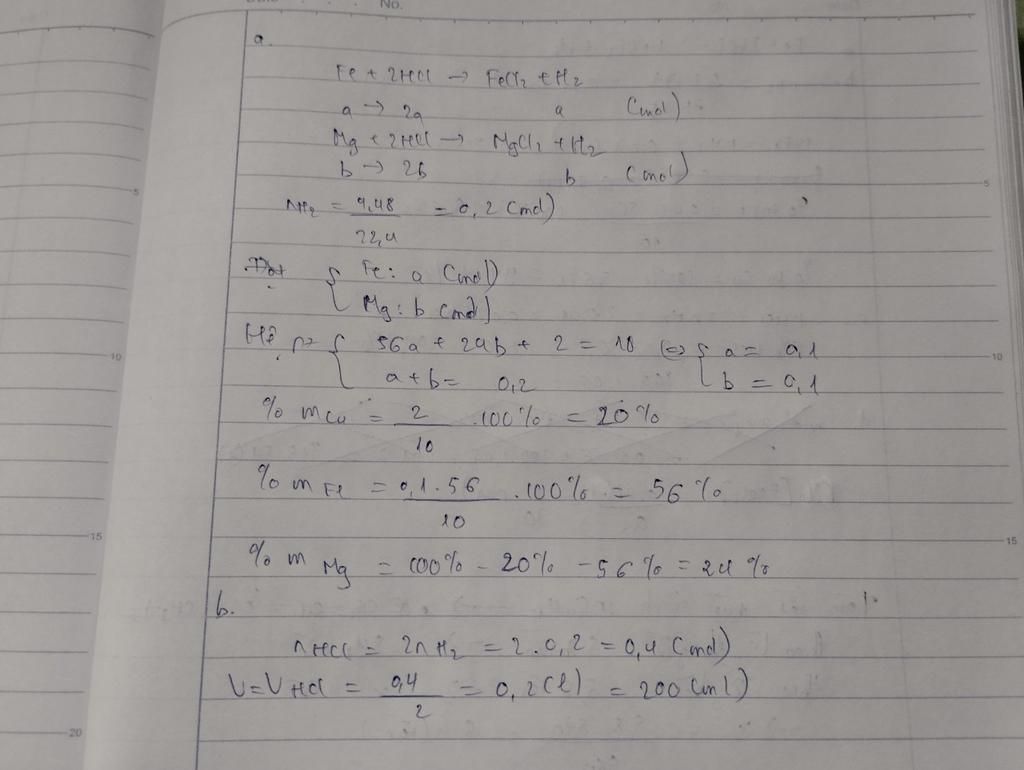 No.
a.
Fe + 2HCl → FeCl2 + H2
a → 2a a (mol)
Mg + 2HCl → MgCl2 + H2
b → 2b b (mol)
nH2 = 4,48 / 22,4 = 0,2 (mol)
Đặt { Fe: a (mol)
Mg: b (mol)
Hệ pt { 56a + 24b + 2 = 10 ⇔ { a = 0,1
a + b = 0,2 b = 0,1
% mCu = 2 / 10 .100% = 20%
% mFe = 0,1.56 / 10 .100% = 56%
% mMg = 100% - 20% - 56% = 24%
b.
nHCl = 2nH2 = 2.0,2 = 0,4 (mol)
V = VHCl = 0,4 / 2 = 0,2 (l) = 200 (ml)
5
5
10
10
15
15
20